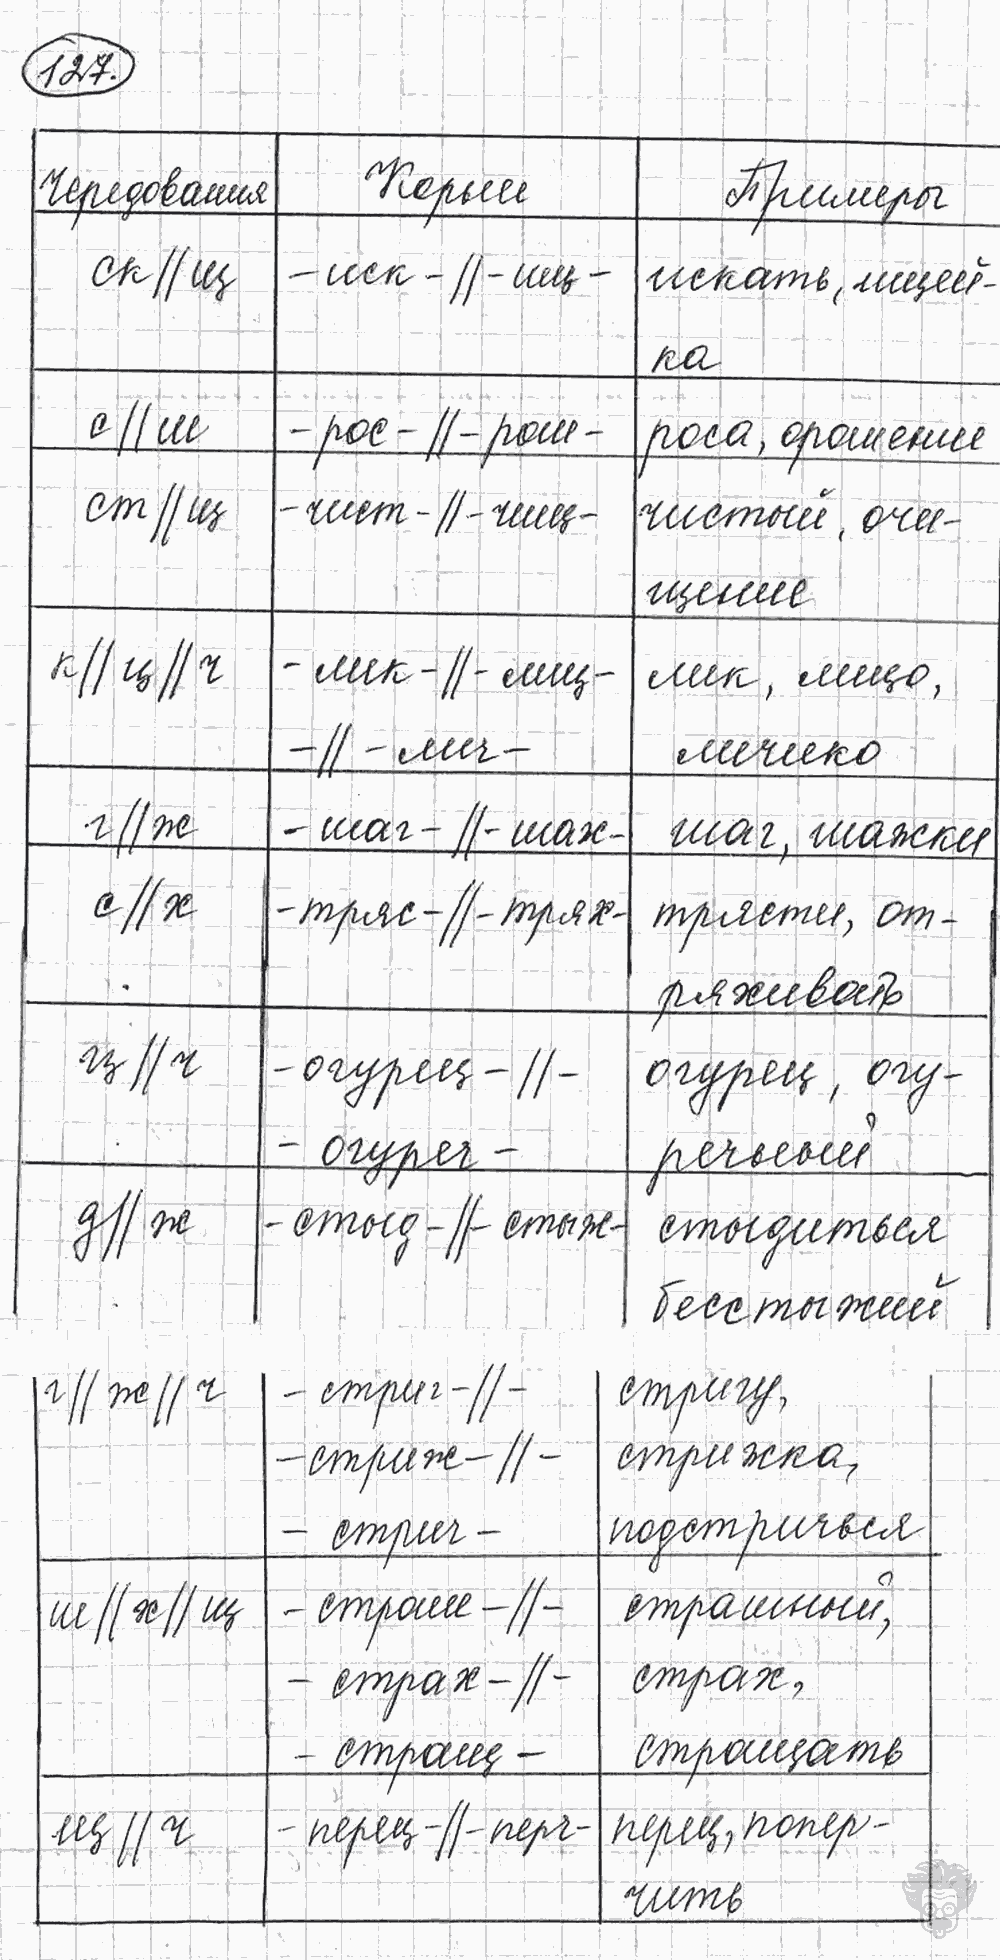 127.
Чередования Корни Примеры
ск // щ -иск-//-ищ- искать, ищей-
ка
с // ш -рос-//-рош- роса, орошение
ст // щ -чист-//-чищ- чистый, очи-
щение
к // ц // ч -лик-//-лиц- лик, лицо,
-//-лич- личико
г // ж -шаг-//-шаж- шаг, шажки
с // х -тряс-//-трях- трясти, от-
ряхивать
ц // ч -огурец-//- огурец, огу-
-огуреч- речный
д // ж -стыд-//-стыж- стыдиться
бесстыжий
г // ж // ч -стриг-//- стригу,
-стриж-//- стрижка,
-стрич- подстричься
ш // х // щ -страш-//- страшный,
-страх-//- страх,
-стращ- стращать
ц // ч -перец-//-перч- перец, попер-
чить